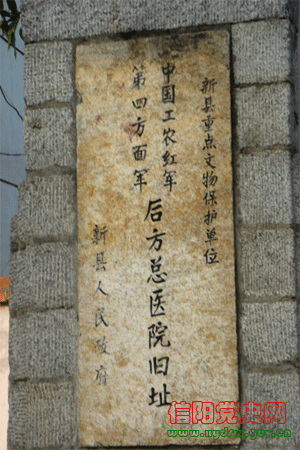 新县重点文物保护单位
中国工农红军
第四方面军
后方总医院旧址
新县人民政府
信阳党史网
www.xydsz.gov.cn